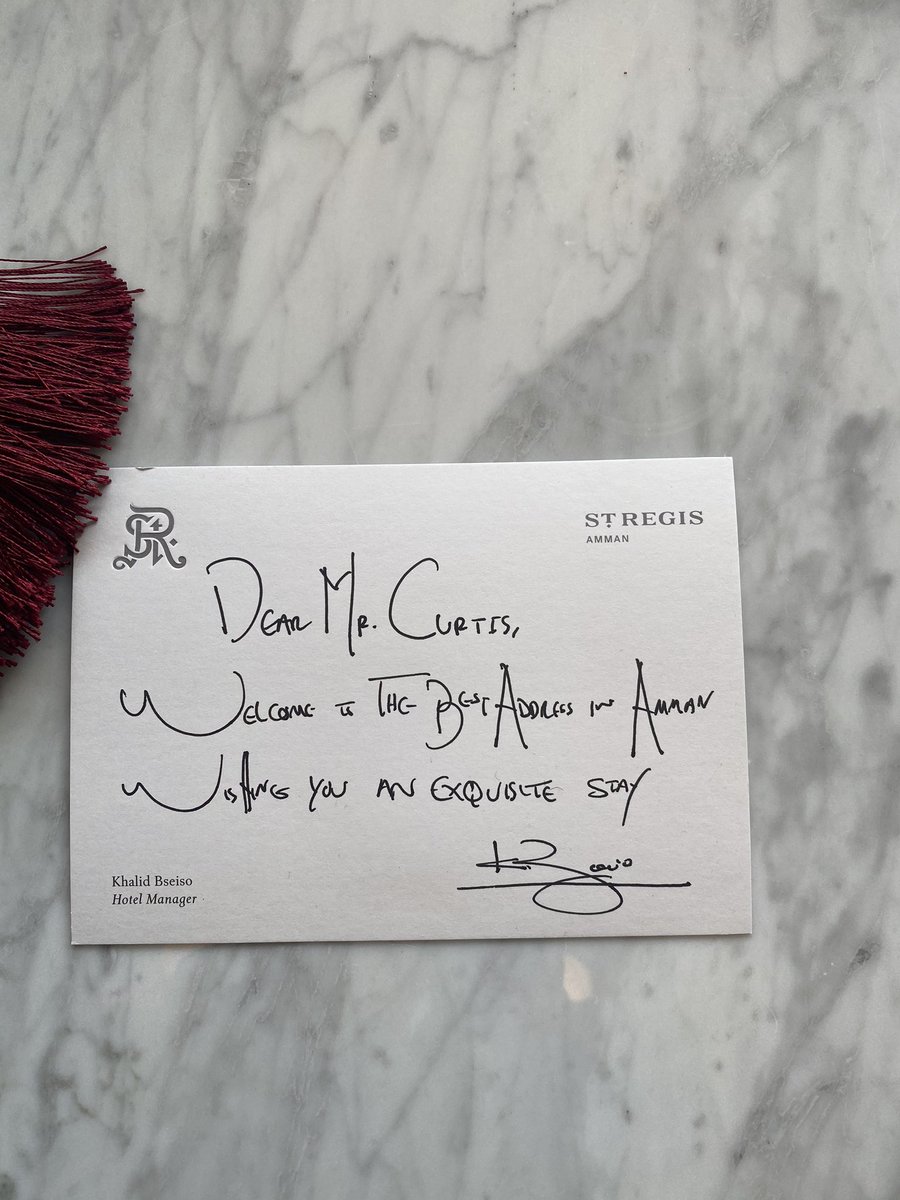 ST. REGIS
AMMAN
DEAR MR. CURTIS,
WELCOME TO THE BEST ADDRESS IN AMMAN
WISHING YOU AN EXQUISITE STAY
Khalid Bseiso
Hotel Manager